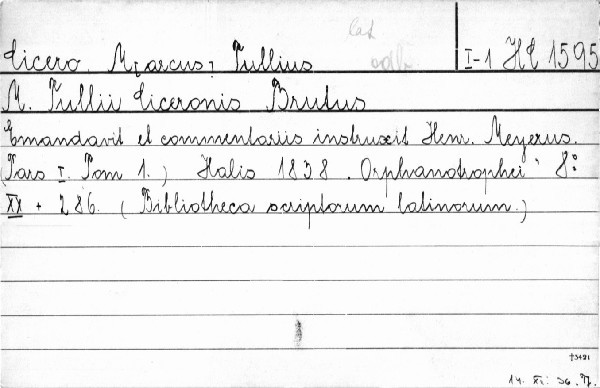 Cicero, M[arcus] Tullius
I-1 Hl 1595
M. Tullii Ciceronis Brutus
Emandavit et commentariis instruxit Henr. Meyerus.
(Pars I. Tom 1.) Halis 1838. Orphanotrophei 8:
XX + 286. (Bibliotheca scriptorum latinorum.)
14. XI. 36.